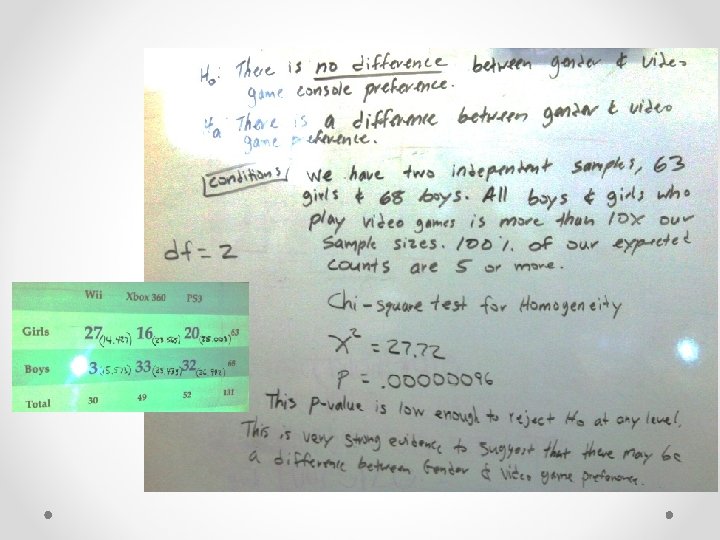 H₀: There is no difference between gender & video
game console preference.
Ha There is a difference between gender & video
game preference.
conditions We have two independent samples, 63
girls & 68 boys. All boys & girls who
play video games is more than 10x our
sample sizes. 100% of our expected
counts are 5 or more.
df = 2
Chi-square test for Homogeneity
X² = 27.72
P = .00000096
This p-value is low enough to reject H₀ at any level.
This is very strong evidence to suggest that there may be
a difference between Gender & Video game preference.
Wii Xbox 360 PS3
Girls 27 (14.427) 16 (23.565) 20 (25.008) 63
Boys 3 (15.573) 33 (25.435) 32 (26.992) 68
Total 30 49 52 131